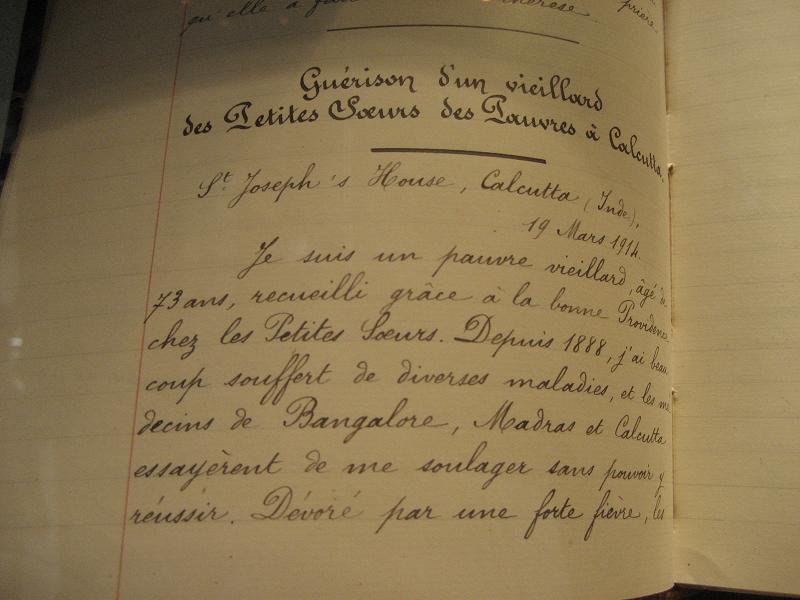 qu'elle a Thérèse. prière
Guérison d'un vieillard
des Petites Sœurs des Pauvres à Calcutta.
St Joseph's House, Calcutta (Inde),
19 Mars 1914.
Je suis un pauvre vieillard, âgé de
73 ans, recueilli grâce à la bonne Providence
chez les Petites Sœurs. Depuis 1888, j'ai beau
coup souffert de diverses maladies, et les mé
decins de Bangalore, Madras et Calcutta
essayèrent de me soulager sans pouvoir y
réussir. Dévoré par une forte fièvre, les